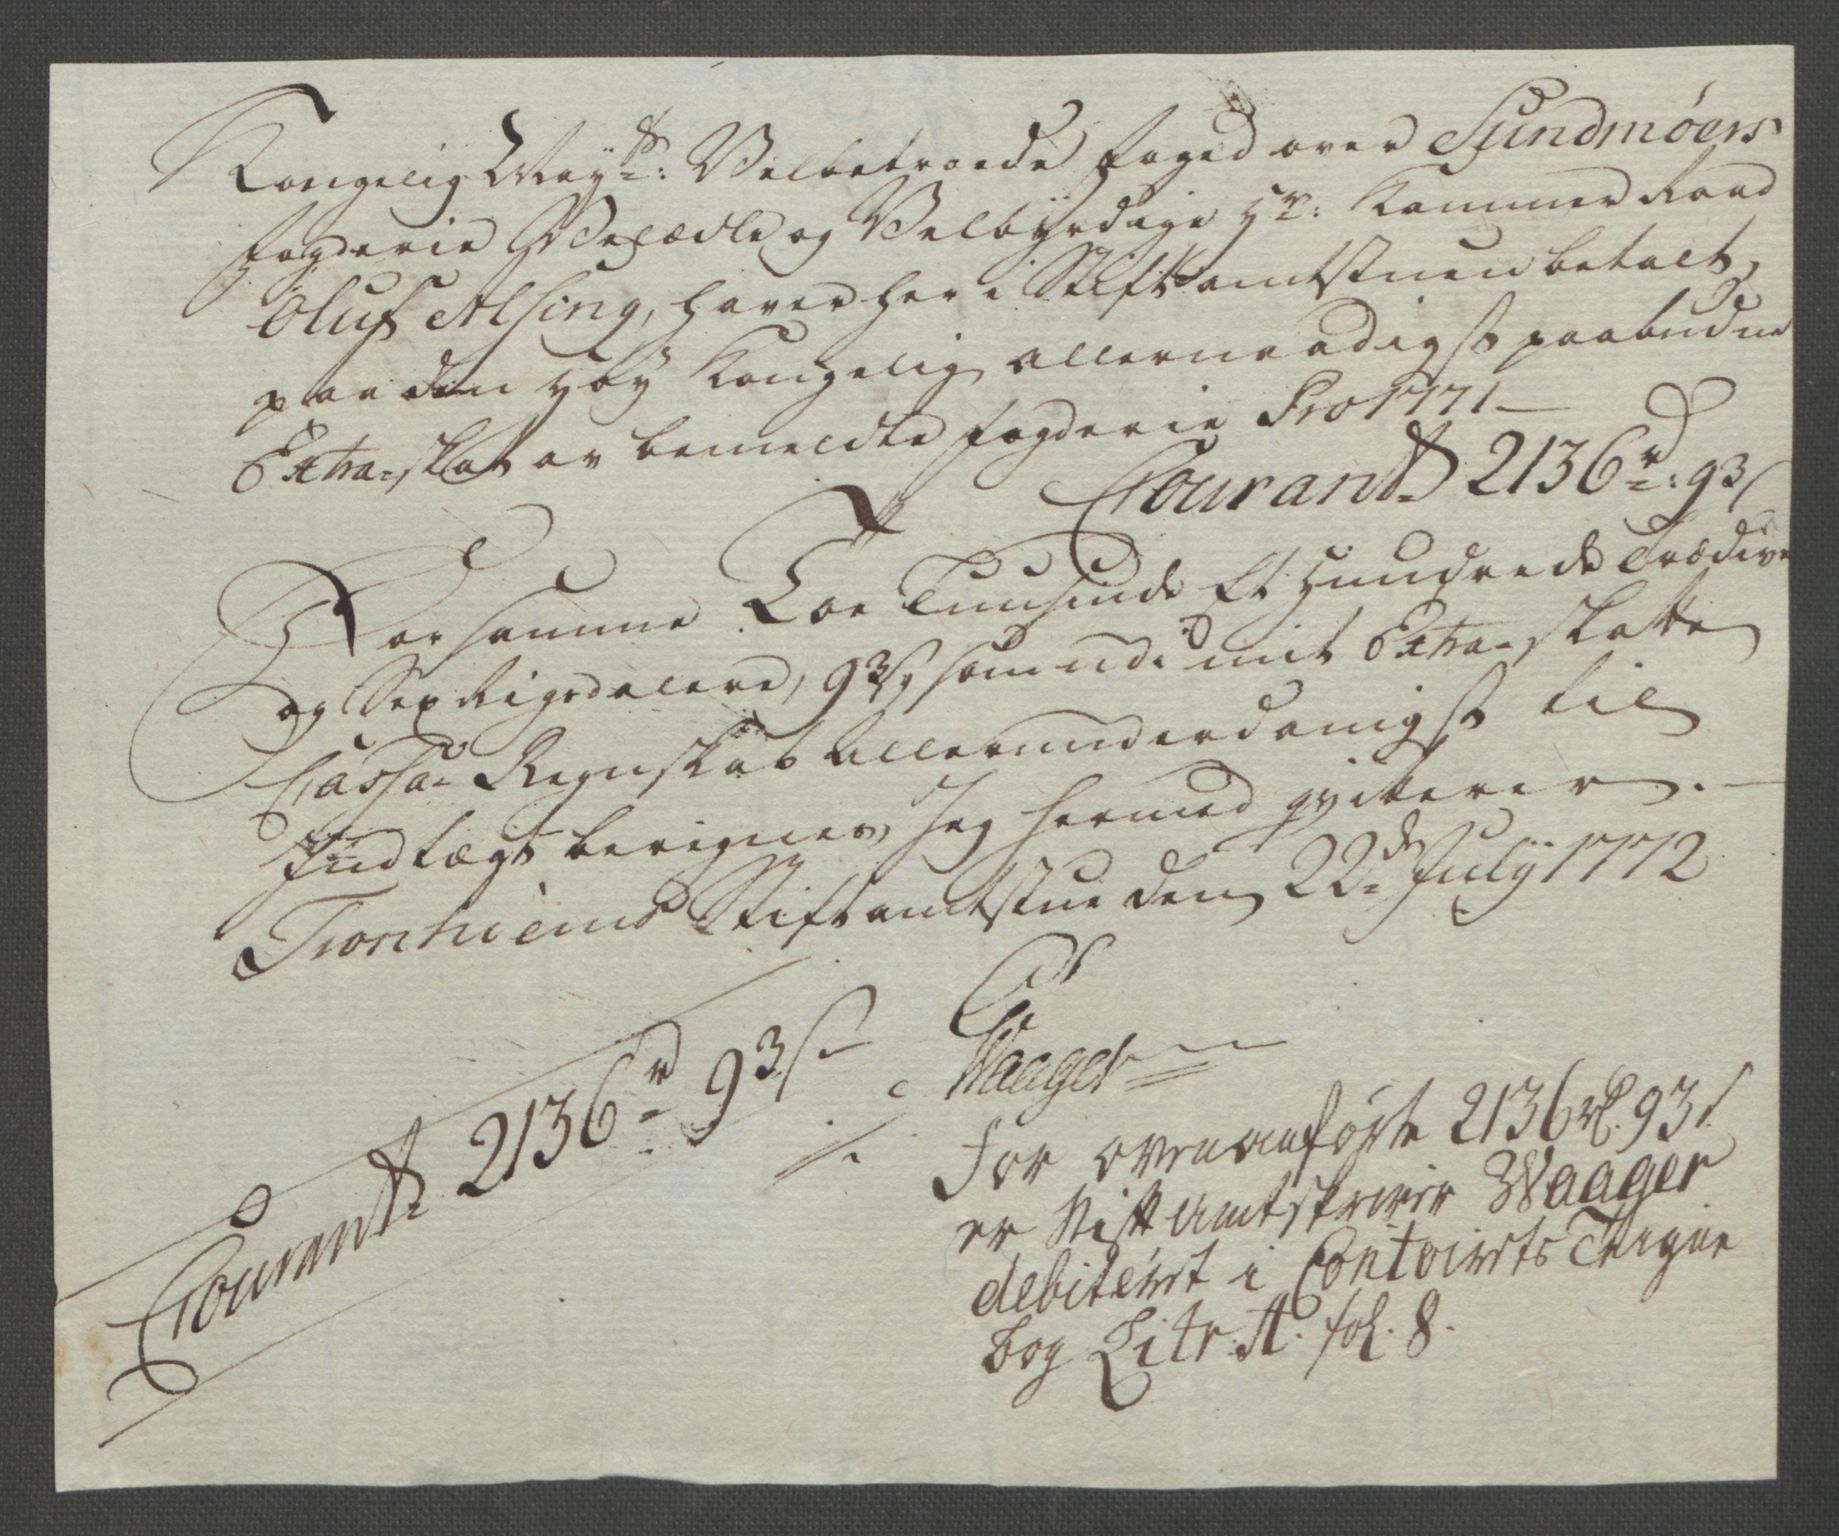 Kongelig May:ts Velbetroede foged over Sundmöers
fogderie Velædle og Velbyrdige Hr: Kammer Raad
Oluf Alsing, haver her i Stiftamtstuen betalt,
paa den høy Kongelig allernaadigst paabudne
Extra-skat av bemeldte fogderie Pro 1771 —
Courant 2136 rd: 93 s
For samme Toe Tuusinde Et Hundrede Trædive
og Sex Rigsdalere, 93 s, som udi mit Extra-skatte
Cassa- Regnskab allerunderdanigst til
Indtægt beregnes, Jeg hermed qviterer. —
Tronhiems Stiftamtstue den 22de July 1772
Waager
Courant 2136 rd 93 s
For ovenanførte 2136 rd. 93 s.
er Stift Amtskriver Waager
debiteret i Contoirets Teigne
bog Litr. A. fol. 8.